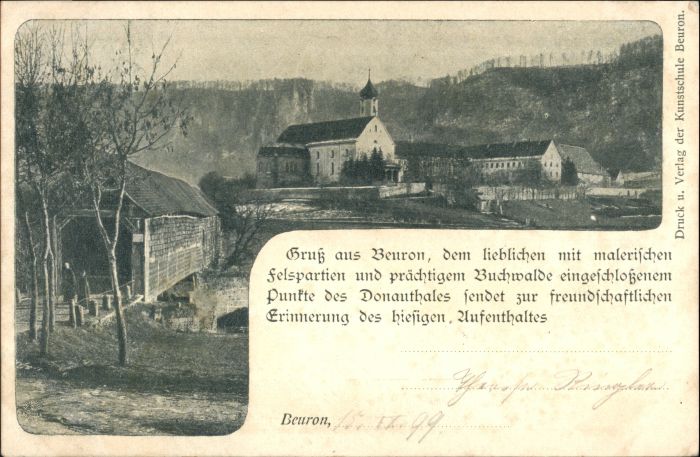 Gruß aus Beuron, dem lieblichen mit malerischen
Felspartien und prächtigem Buchwalde eingeschloßenem
Punkte des Donauthales sendet zur freundschaftlichen
Erinnerung des hiesigen Aufenthaltes
Beuron, 99
Druck u. Verlag der Kunstschule Beuron.